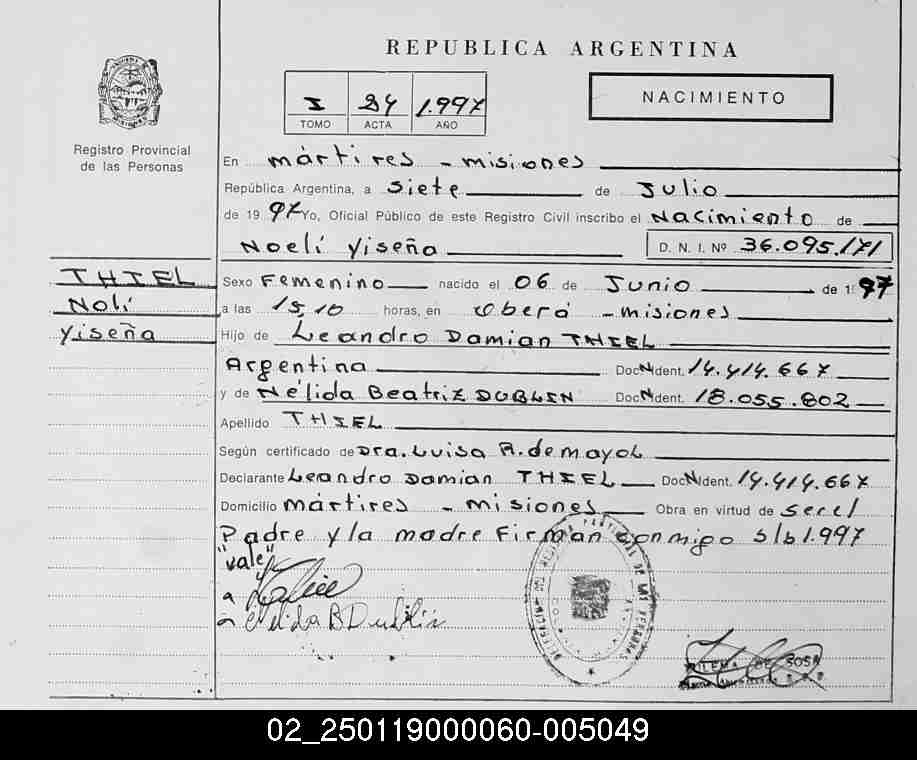 REPUBLICA ARGENTINA
I 84 1.997
TOMO ACTA AÑO
NACIMIENTO
Registro Provincial
de las Personas
En mártires - misiones
República Argentina, a siete de Julio
de 1997 Yo, Oficial Público de este Registro Civil inscribo el Nacimiento de
Noelí Yiseña D. N. I. Nº 36.095.171
THIEL
Nolí
Yiseña
Sexo Femenino nacido el 06 de Junio de 1997
a las 15,10 horas, en Oberá - misiones
Hijo de Leandro Damian THIEL
Argentina Doc Nident. 14.414.667
y de Nélida Beatriz DUBLIN Doc Nident. 18.055.802
Apellido THIEL
Según certificado de Dra. Luisa A. de mayol
Declarante Leandro Damian THIEL Doc Nident. 14.414.667
Domicilio mártires - misiones Obra en virtud de ser el
Padre y la madre Firman conmigo s/b 1.997
"vale"
Nelida B Dublin
DELEGACION DEL REGISTRO PROVINCIAL DE LAS PERSONAS
DE SOSA
02_250119000060-005049